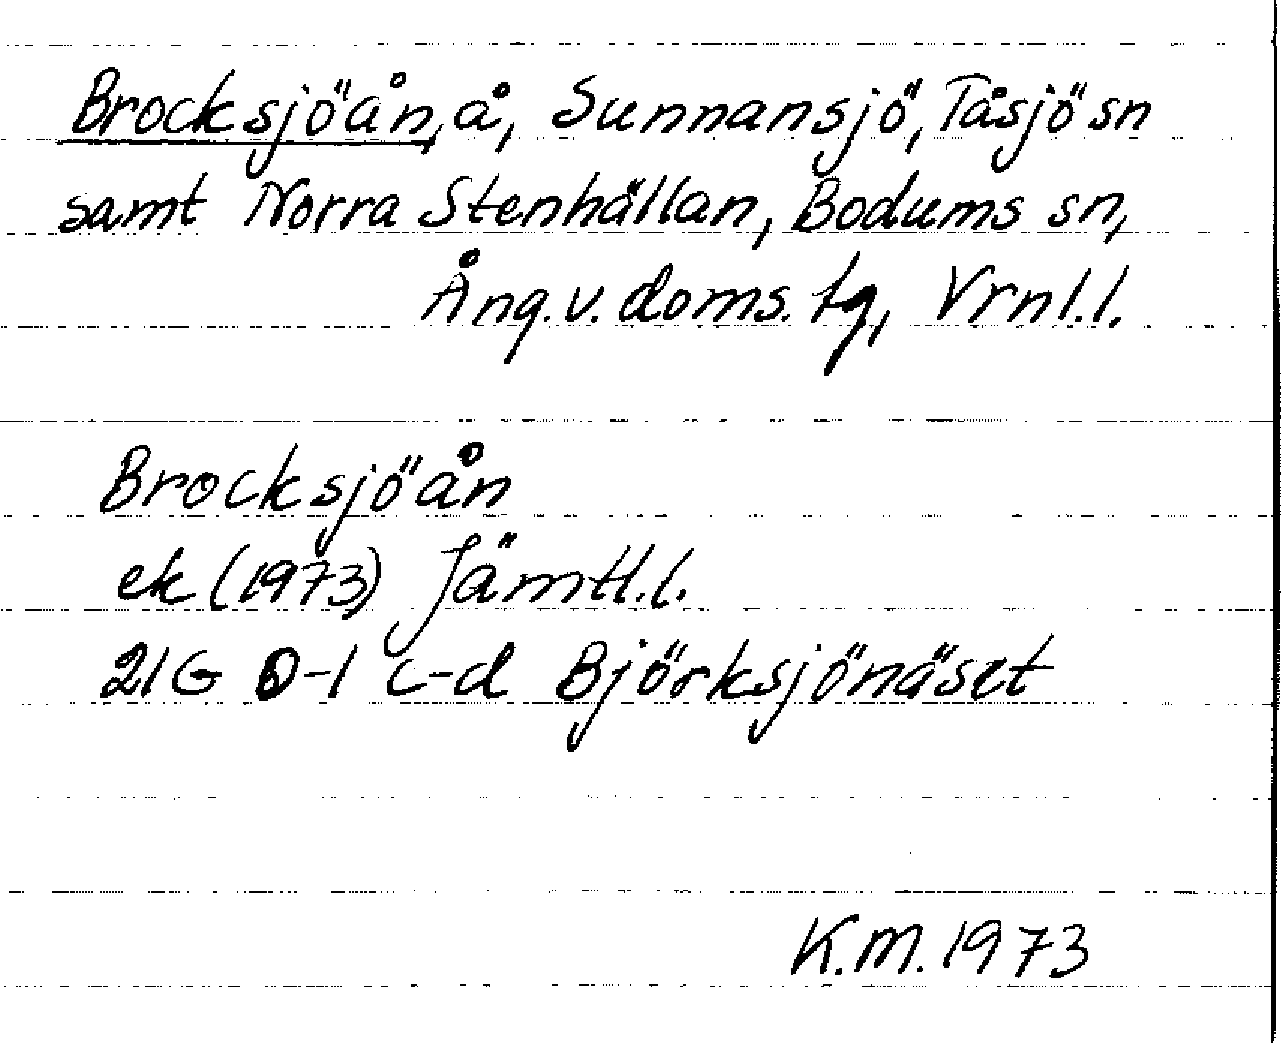 Brocksjöån, å, Sunnansjö, Tåsjö sn
samt Norra Stenhällan, Bodums sn,
Ång.v. doms. tg, Vrnl.l.
Brocksjöån
ek (1973) Jämtl.l.
21G 0-1 c-d Björksjönäset
K.M. 1973